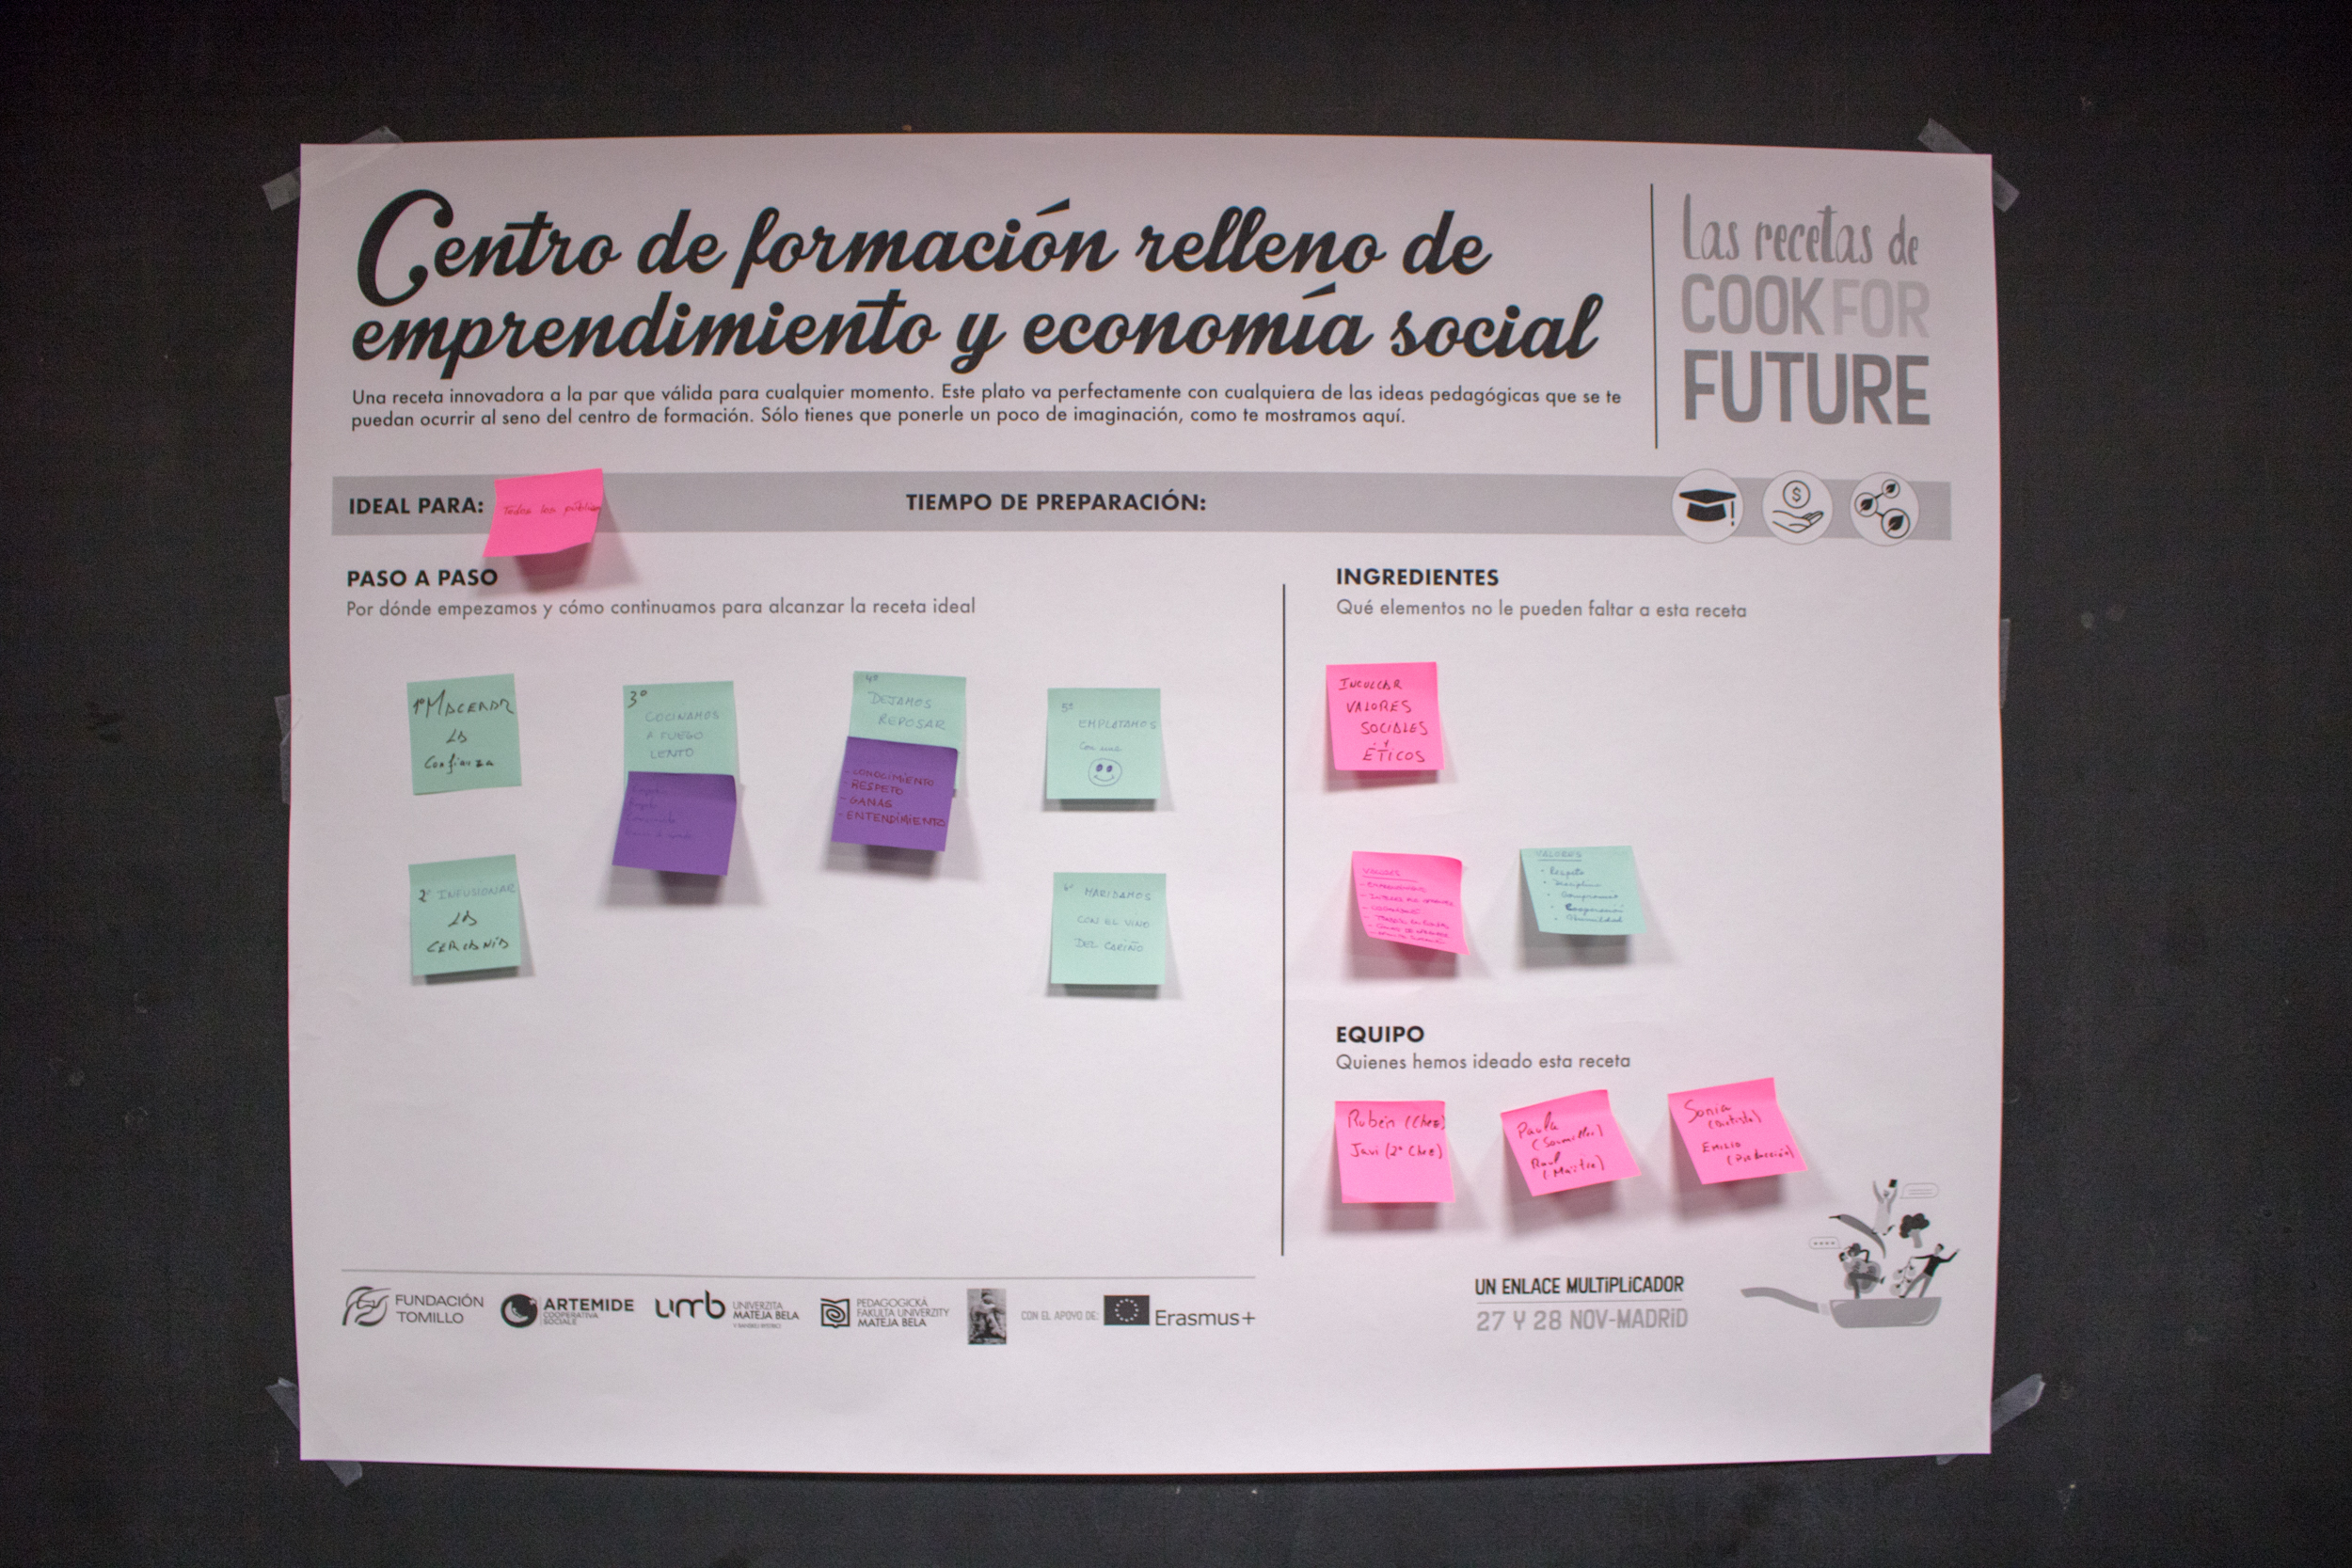 Centro de formación relleno de
emprendimiento y economía social
Una receta innovadora a la par que válida para cualquier momento. Este plato va perfectamente con cualquiera de las ideas pedagógicas que se te
puedan ocurrir al seno del centro de formación. Sólo tienes que ponerle un poco de imaginación, como te mostramos aquí.
Las recetas de
COOK FOR
FUTURE
IDEAL PARA:
Todos los públicos
TIEMPO DE PREPARACIÓN:
$
PASO A PASO
Por dónde empezamos y cómo continuamos para alcanzar la receta ideal
1º MACERAR
LA
Confianza
2º INFUSIONAR
LA
CERCANÍA
3º
COCINAMOS
A FUEGO
LENTO
4º
DEJAMOS
REPOSAR
- CONOCIMIENTO
- RESPETO
- GANAS
- ENTENDIMIENTO
5º
EMPLATAMOS
Con una
6º MARIDAMOS
CON EL VINO
DEL CARIÑO
INGREDIENTES
Qué elementos no le pueden faltar a esta receta
INCULCAR
VALORES
SOCIALES
Y
ÉTICOS
VALORES
VALORES
• Respeto
• Disciplina
• Compromiso
• Cooperación
• Humildad
EQUIPO
Quienes hemos ideado esta receta
Rubén (Chef)
Javi (2º Chef)
Paula
(Sumiller)
Raul
(Maître)
Sonia
(Artista)
Emilio
(Producción)
FUNDACIÓN
TOMILLO
ARTEMIDE
COOPERATIVA
SOCIALE
umb
UNIVERZITA
MATEJA BELA
V BANSKEJ BYSTRICI
PEDAGOGICKÁ
FAKULTA UNIVERZITY
MATEJA BELA
CON EL APOYO DE:
Erasmus+
UN ENLACE MULTIPLICADOR
27 Y 28 NOV-MADRID